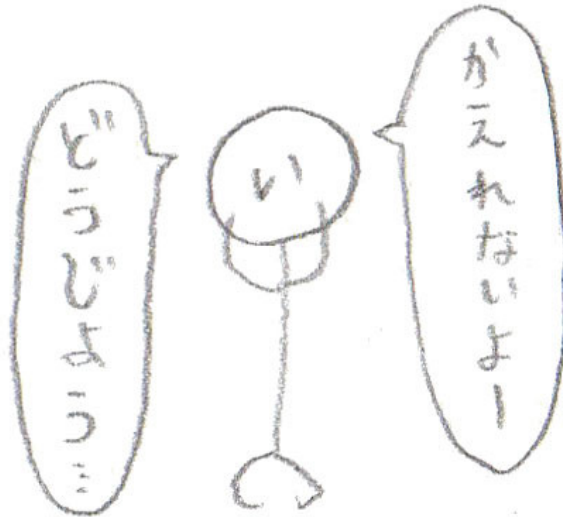 かえれないよー
い
どうじよう…